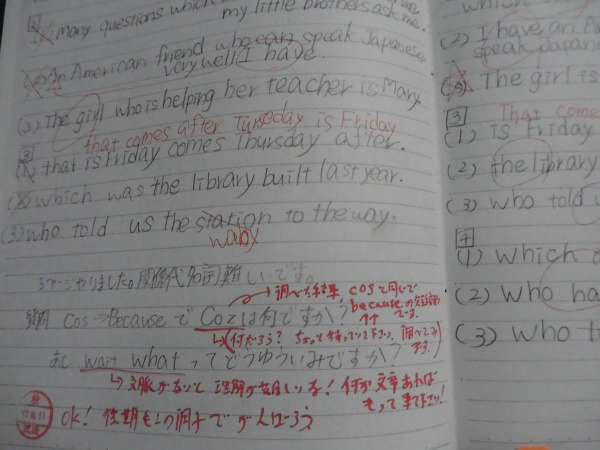 many questions which
my little brothers ask me.
An American friend who can speak Japanese
very well I have.
(3) The girl who is helping her teacher is Mary.
that comes after Turseday is Friday
that is Friday comes Thursday after.
which was the library built last year.
(3) who told us the station to the way.
way
ました。関係代名詞難しいです。
質問 cos→Because で Cozは何ですか?
→調べた結果 cosと同じで
becauseの
です。
(何だろう? ちょっと待ってて下さい。調べてみ
ます。)
あと wait what ってどうゆういみですか?
→文脈がないと 理解が難しいな! 何か文章あれば
もって来て下さい!
OK! 後期もこの調子でがんばろう
which
(2) I have an A
speak Japan
The girl is
3
That come
(1) is Friday
(2) the library
(3) who told u
4
(1) which
(2) who ha
(3) who t